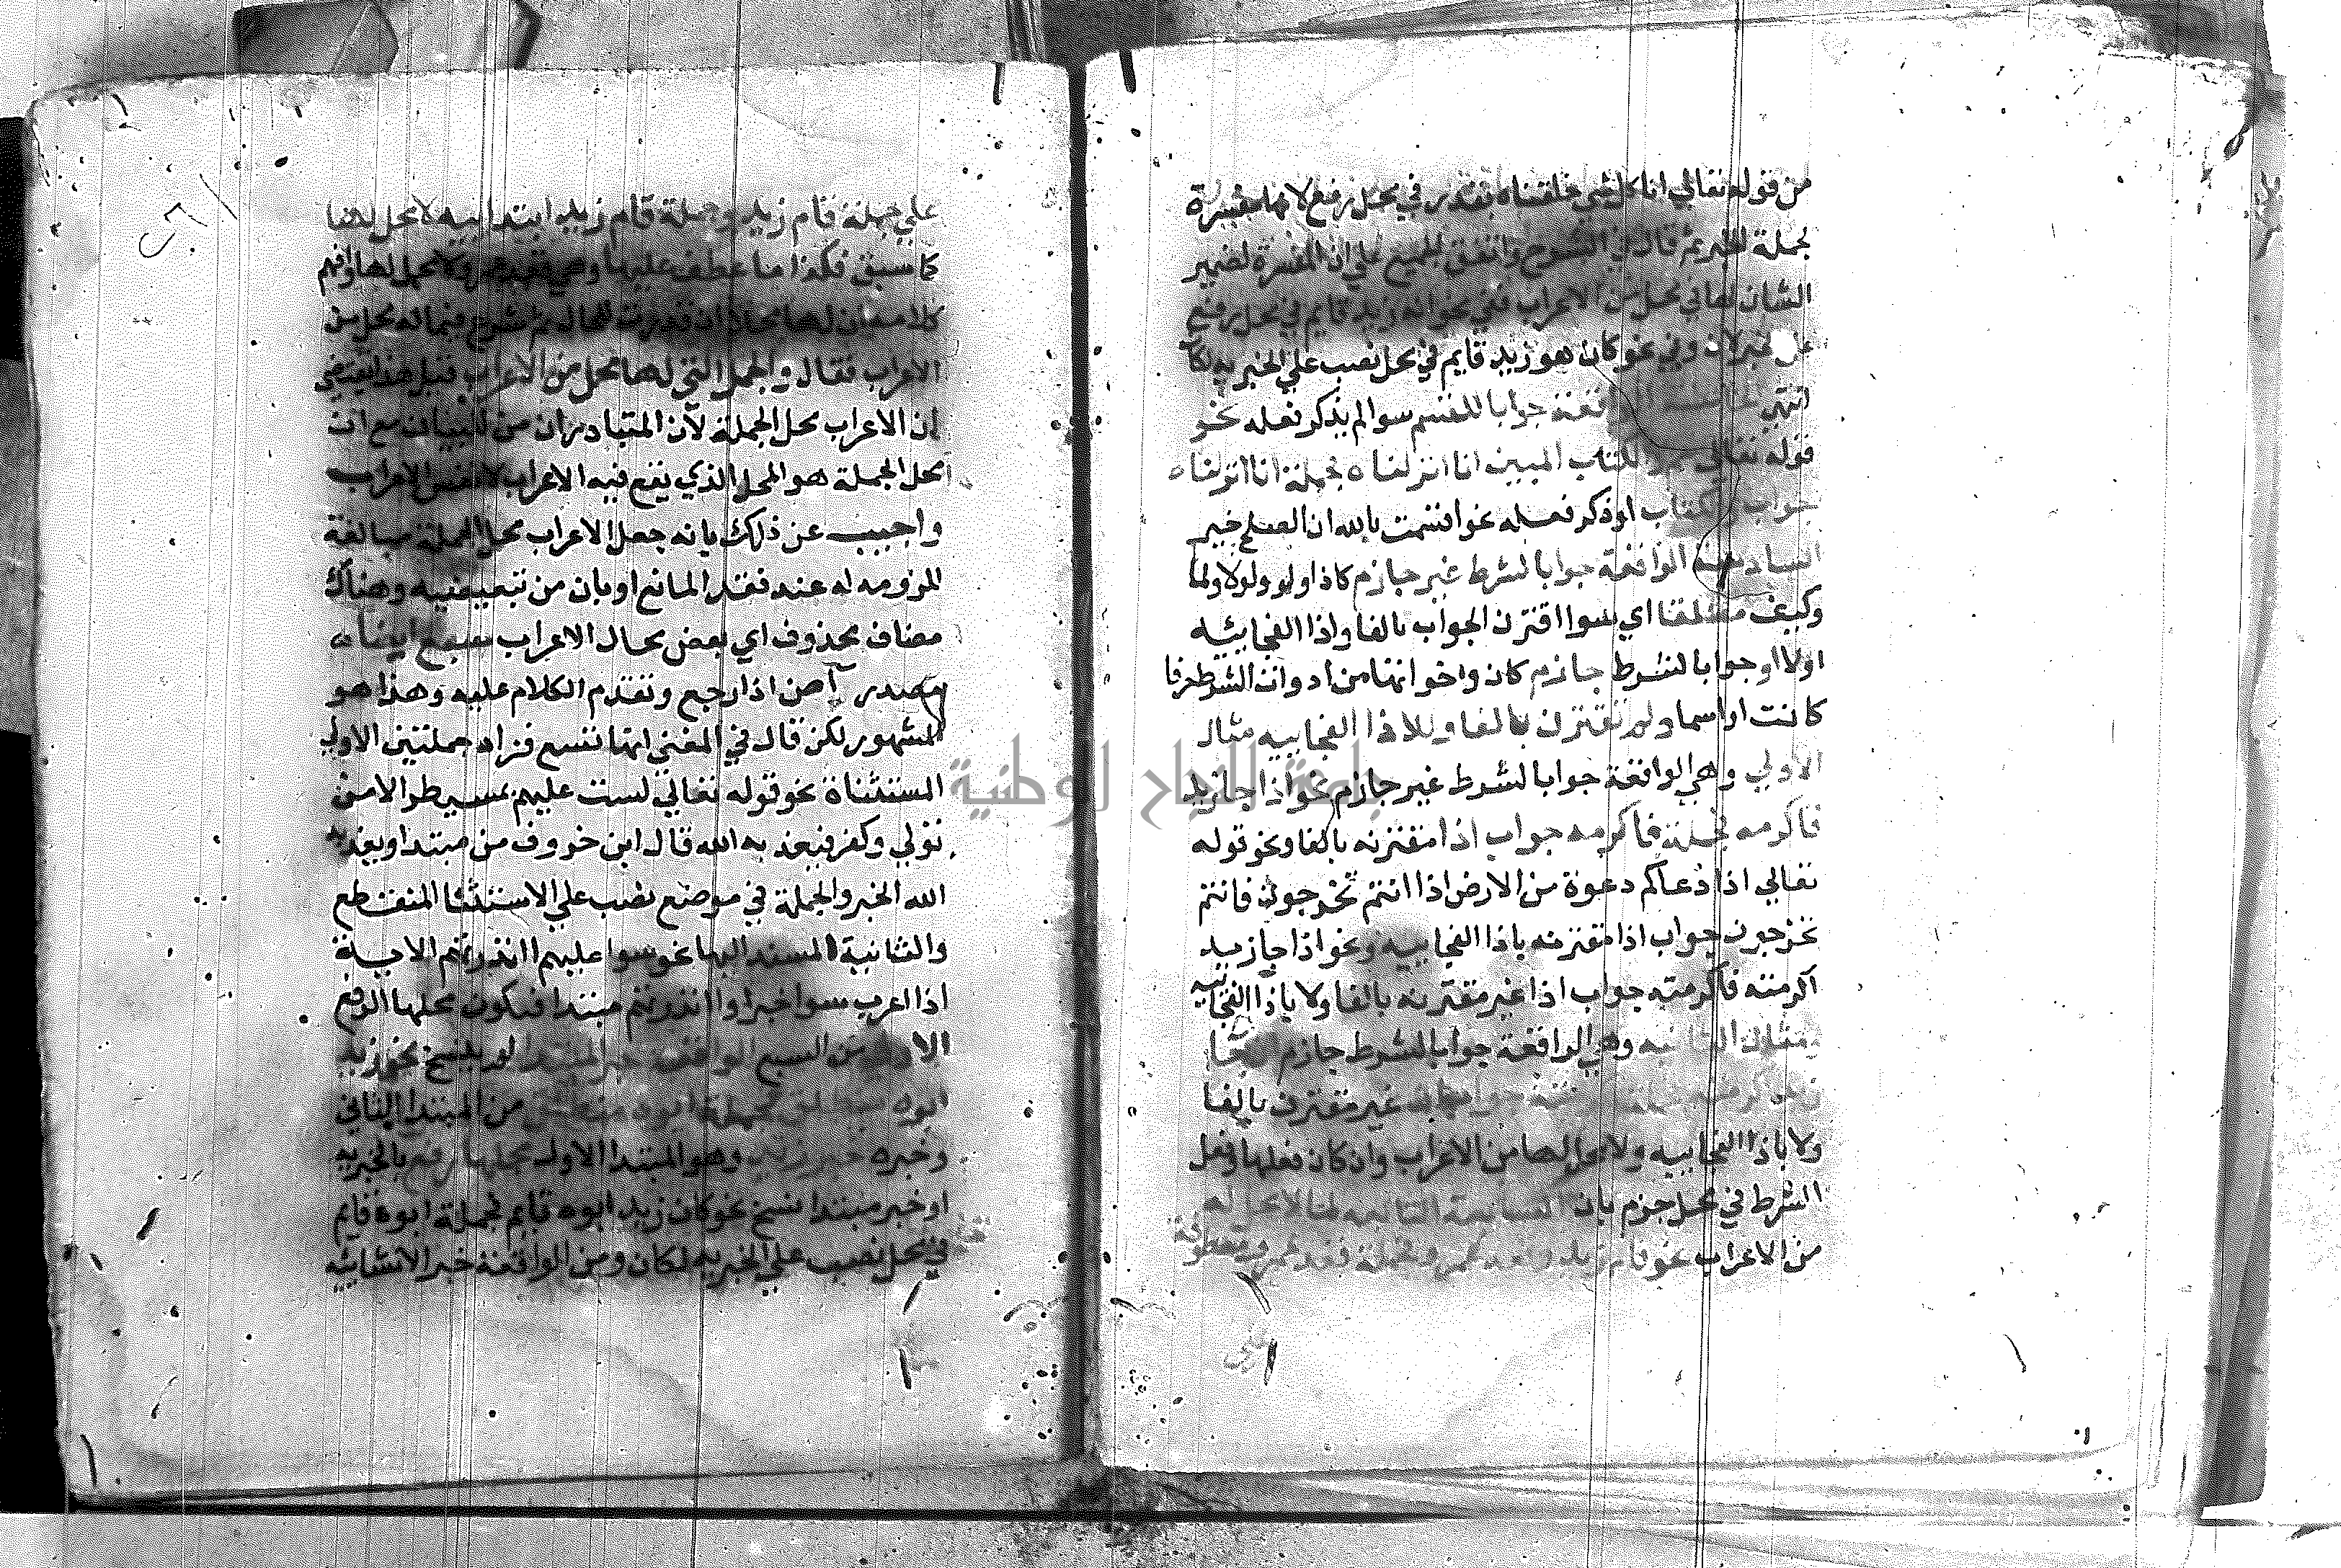 من قوله تعالي انا كل شي خلقناه بقدر في محل رفع لانها مفسرة
لجملة الخبر ثم قال في الشرح واتفق الجميع علي ان المفسرة لضمير
الشان لها في محل من الاعراب فهي نحو انه زيد قايم في محل رفع
خبر لان وفي نحو كان هو زيد قايم في محل نصب علي الخبريه لكان
انتهي الواقعة جوابا للقسم سوا لم يذكر فعله نحو
قوله تعالي والكتاب المبين انا انزلناه فجملة انا انزلناه
جواب والكتاب او ذكر فعله نحو اقسمت بالله ان الصلح خير
السادسة الواقعة جوابا لشرط غير جازم كاذا ولو ولولا ولما
وكيف مطلقا اي سوا اقترن الجواب بالفا واذا الفجائيه
اولا او جوابا لشرط جازم كان واخواتها من ادوات الشرط حرفا
كانت او اسما ولم تقترن بالفا ولا اذا الفجاييه مثال
الاولي وهي الواقعة جوابا لشرط غير جازم نحو اذا جا زيد
فاكرمه فجملة فاكرمه جواب اذا مقترنه بالفا ونحو قوله
تعالي اذا دعاكم دعوة من الارض اذا انتم تخرجون فانتم
تخرجون جواب اذا مقترنه باذا الفجاييه ونحو اذا جا زيد
اكرمته فاكرمته جواب اذا غير مقترنه بالفا ولا باذا الفجاييه
ومثال الثانيه وهي الواقعة جوابا لشرط جازم
غير مقترن بالفا
ولا باذا الفجاييه ولا محل لها من الاعراب وان كان فعلها وفعل
الشرط في محل جزم بان السابعة التابعه لما لا محل له
من الاعراب نحو قام زيد وقعد عمرو فجملة قعد عمرو معطوفة
علي جملة قام زيد وجملة قام زيد ابتداييه لا محل لها
كما سبق فكذا ما عطف عليها وهي قعد عمرو لا محل لها وافهم
كلامه ان لها محلا ان قدرت للحال ثم شرع فيما له محل من
الاعراب فقال والجمل التي لها محل من الاعراب قيل هذا يقتضي
ان الاعراب محل الجملة لان المتبادر ان من للبيان مع ان
محل الجملة هو المحل الذي يقع فيه الاعراب لا نفس الاعراب
واجيب عن ذلك بانه جعل الاعراب محل الجملة مبالغة
للزومه له عند فقد المانع او بان من تبعيضيه وهناك
مضاف محذوف اي بعض محال الاعراب سبع ايضا
مصدر آض اذا رجع وتقدم الكلام عليه وهذا هو
المشهور لكن قال في المغني انها تسع فزاد جملتين الاولي
المستثناة نحو قوله تعالي لست عليهم بمسيطر الا من
تولي وكفر فيعذبه الله قال ابن خروف من مبتدا ويعذبه
الله الخبر والجملة في موضع نصب علي الاستثنا المنقطع
والثانية المسند اليها نحو سوا عليهم اانذرتهم الاية
اذا اعرب سوا خبرا واانذرتهم مبتدا فيكون محلها الرفع
الاولي من السبع الواقعة خبر المبتدا لم ينسخ نحو زيد
ابوه منطلق فجملة ابوه منطلق من المبتدا الثاني
وخبره خبر زيد وهو المبتدا الاول محلها رفع بالخبريه
او خبر مبتدا نسخ نحو كان زيد ابوه قايم فجملة ابوه قايم
في محل نصب علي الخبريه لكان ومن الواقعة خبر الانشائيه
جامعة النجاح الوطنية